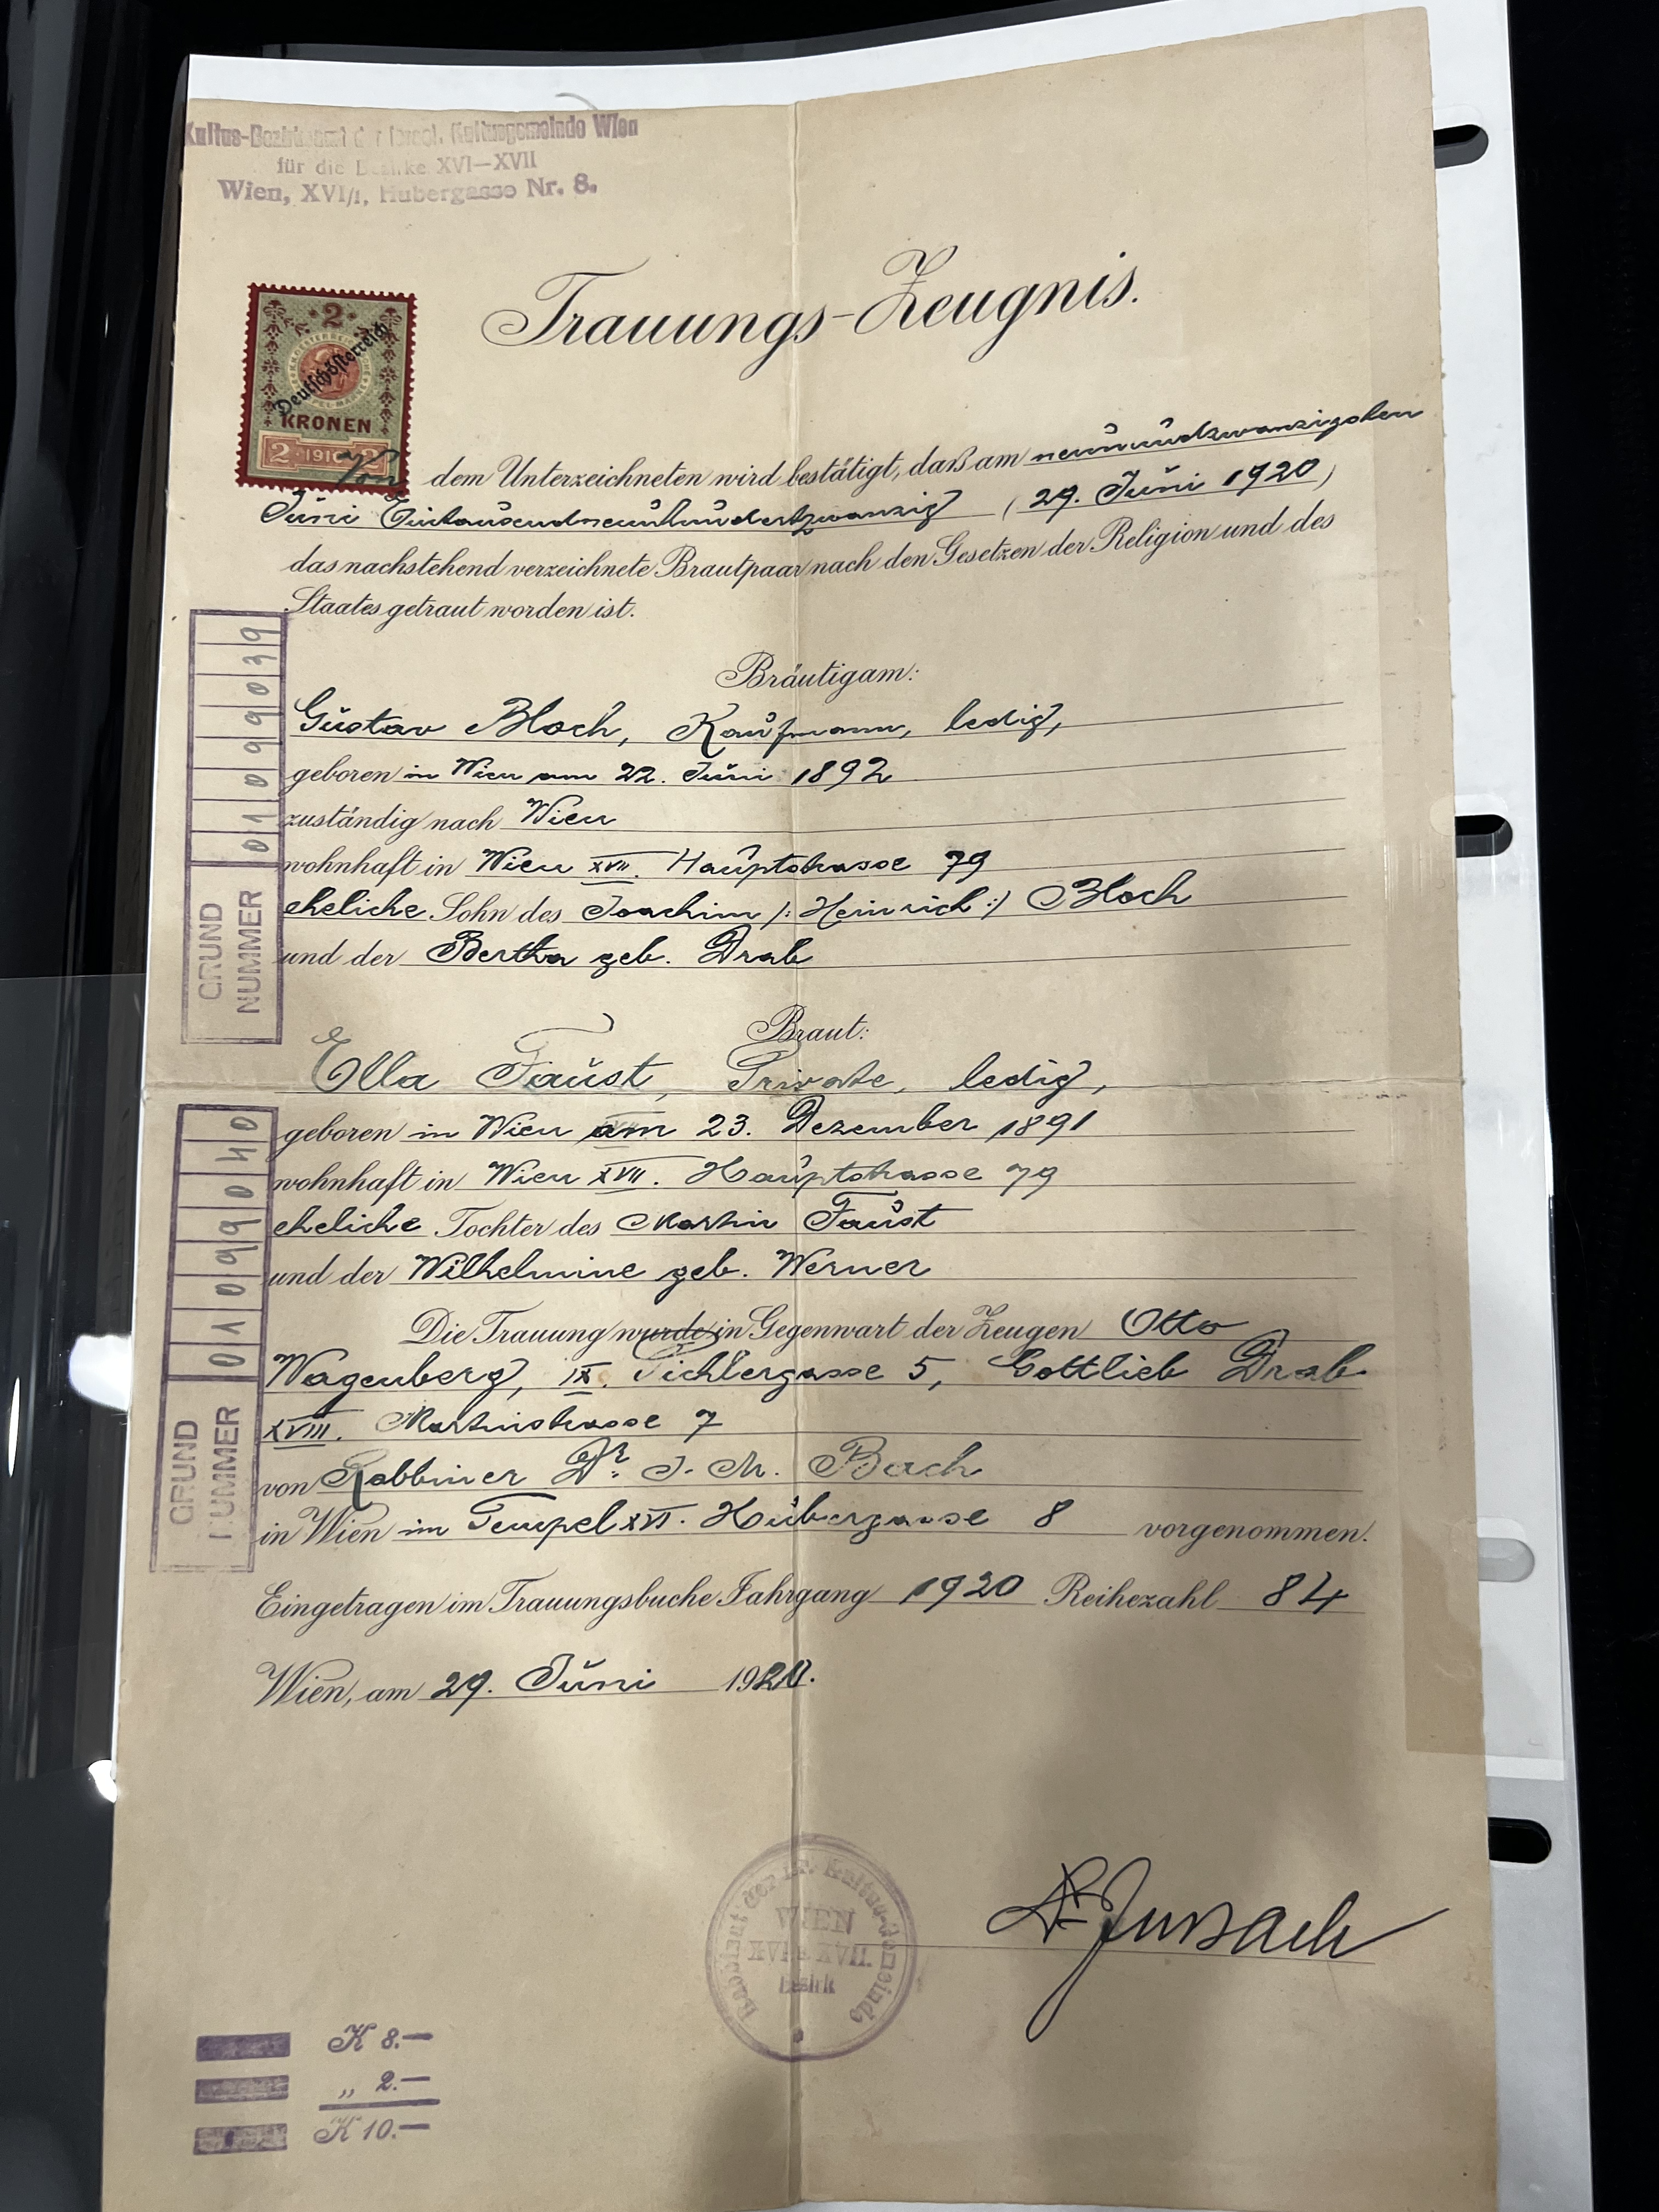 Kultus-Bezirksamt der israel. Kultusgemeinde Wien
für die Bezirke XVI—XVII
Wien, XVI/1, Hubergasse Nr. 8.
Trauungs-Zeugnis.
2
Deutschösterreich
KRONEN
2 · 1910 · 2
Von dem Unterzeichneten wird bestätigt, daß am neunundzwanzigsten
Juni Eintausendneunhundertzwanzig (29. Juni 1920)
das nachstehend verzeichnete Brautpaar nach den Gesetzen der Religion und des
Staates getraut worden ist.
Bräutigam:
Gustav Bloch, Kaufmann, ledig,
geboren in Wien am 22. Juni 1892
zuständig nach Wien
wohnhaft in Wien XVII. Hauptstrasse 79
eheliche Sohn des Joachim /: Heinrich :/ Bloch
und der Bertha geb. Drab
GRUND
NUMMER
01099039
Braut:
Ella Faust, Private, ledig,
geboren in Wien am 23. Dezember 1891
wohnhaft in Wien XVII. Hauptstrasse 79
eheliche Tochter des Martin Faust
und der Wilhelmine geb. Werner
GRUND
NUMMER
01099040
Die Trauung wurde in Gegenwart der Zeugen Otto
Wagenberg, IX. 5, Gottlieb Drab
XVIII. Martinstrasse 7
von Rabbiner Dr. J. M. Bach
in Wien im Tempel XVI. Hubergasse 8 vorgenommen.
Eingetragen im Trauungsbuche Jahrgang 1920 Reihezahl 84
Wien, am 29. Juni 1920.
Rabbinat der isr. Kultus-Gemeinde
WIEN
XVI. & XVII.
Bezirk
Dr. J M Bach
K 8.—
„ 2.—
K 10.—